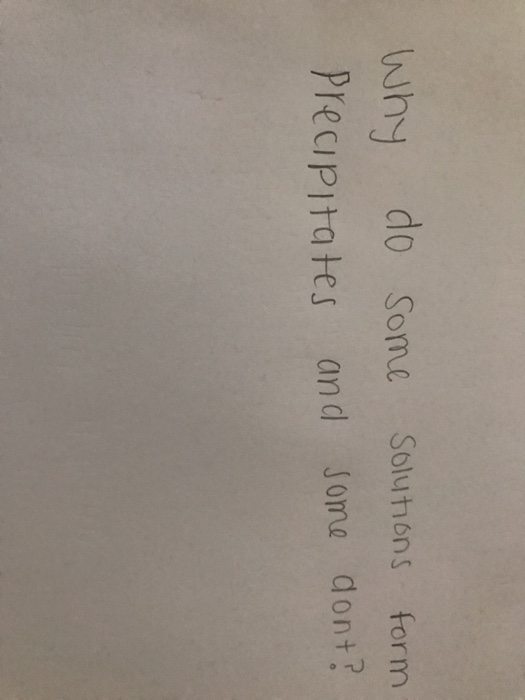 Why do some solutions form
precipitates and some dont?